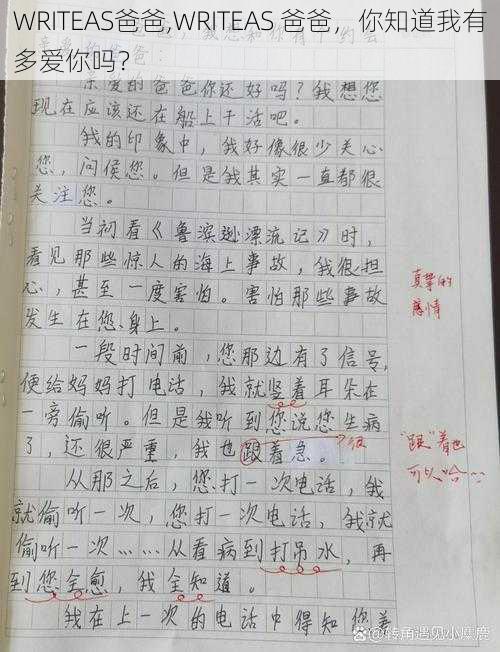 WRITEAS爸爸,WRITEAS 爸爸，你知道我有
多爱你吗？
亲爱的爸爸：
亲爱的爸爸你还好吗？我想您
现在应该还在船上干活吧。
我的印象中，我好像很少关心
您，问候您。但是我其实一直都很
关注您。
当初看《鲁滨逊漂流记》时，
看见那些惊人的海上事故，我很担
心，甚至一度害怕。害怕那些事故
发生在您身上。
真挚的
感情
一段时间前，您那边有了信号，
便给妈妈打电话，我就竖着耳朵在
一旁偷听。但是我听到您说您生病
了，还很严重，我也跟着急。
"跟"着也
可以哈
从那之后，您打一次电话，我
就偷听一次，您打一次电话，我就
偷听一次……从看病到打吊水，再
到您全愈，我全知道。
我在上一次的电话中得知您差
知乎 @转角遇见小麋鹿